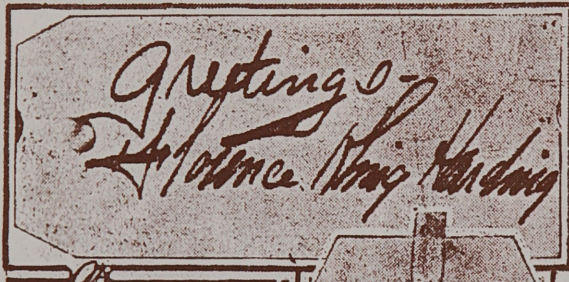 Greetings-
Florence Kling Harding